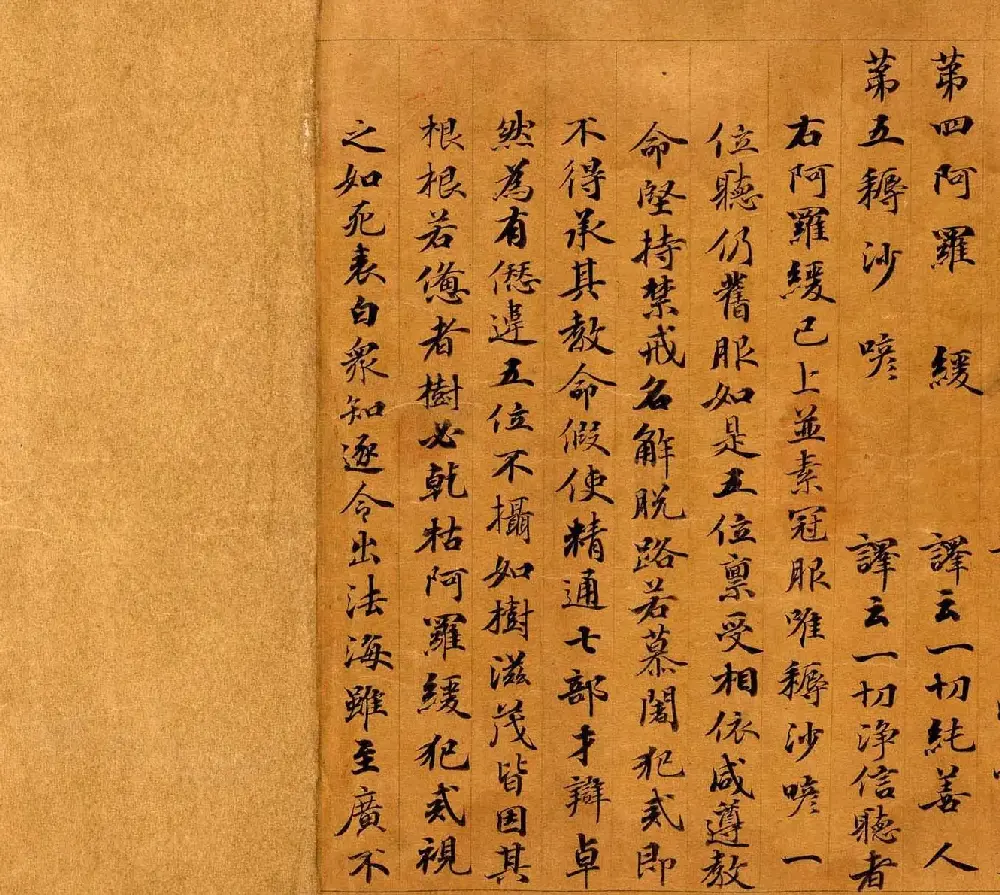 苐四阿羅緩 譯云一切純善人
苐五耨沙喭 譯云一切淨信聽者
右阿羅緩已上並素冠服唯耨沙喭一
位聽仍舊服如是五位稟受相依咸遵教
命堅持禁戒名解脫路若慕闍犯戒即
不得承其教命假使精通七部才辯卓
然為有僁違五位不攝如樹滋茂皆因其
根根若憊者樹必乾枯阿羅緩犯戒視
之如死表白眾知逐令出法海雖至廣不